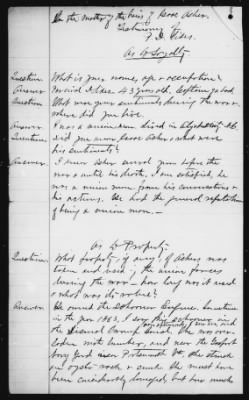 In the matter of the heirs of Jesse Asher.
Testimony
As to Loyalty
Question. What is your name, age & occupation?
Answer 43 years old,
Question What were your sentiments during the war &
where did you live.
Answer. I was a union man lived in Elizabeth City N.C.
Question. did you know Jesse Asher & what were
his sentiments?
Answer. I knew Asher several years before the
war & until his death. I am satisfied, he
was a union man from his conversations &
his actions. He had the general reputation
of being a union man. —
As to Property.
Question. What property, if any, of Ashers was
taken and used, by the union forces
during the war — how long was it used
& what was its value?
Answer. He owned the schooner Sometime
in the year 1863, I saw this schooner in
the Dismal Swamp Canal. She was over-
loaden with lumber, and near the Gosport
Navy Yard near Portsmouth Va, she struck
an rock & sunk. She must have
been considerably damaged, but how much